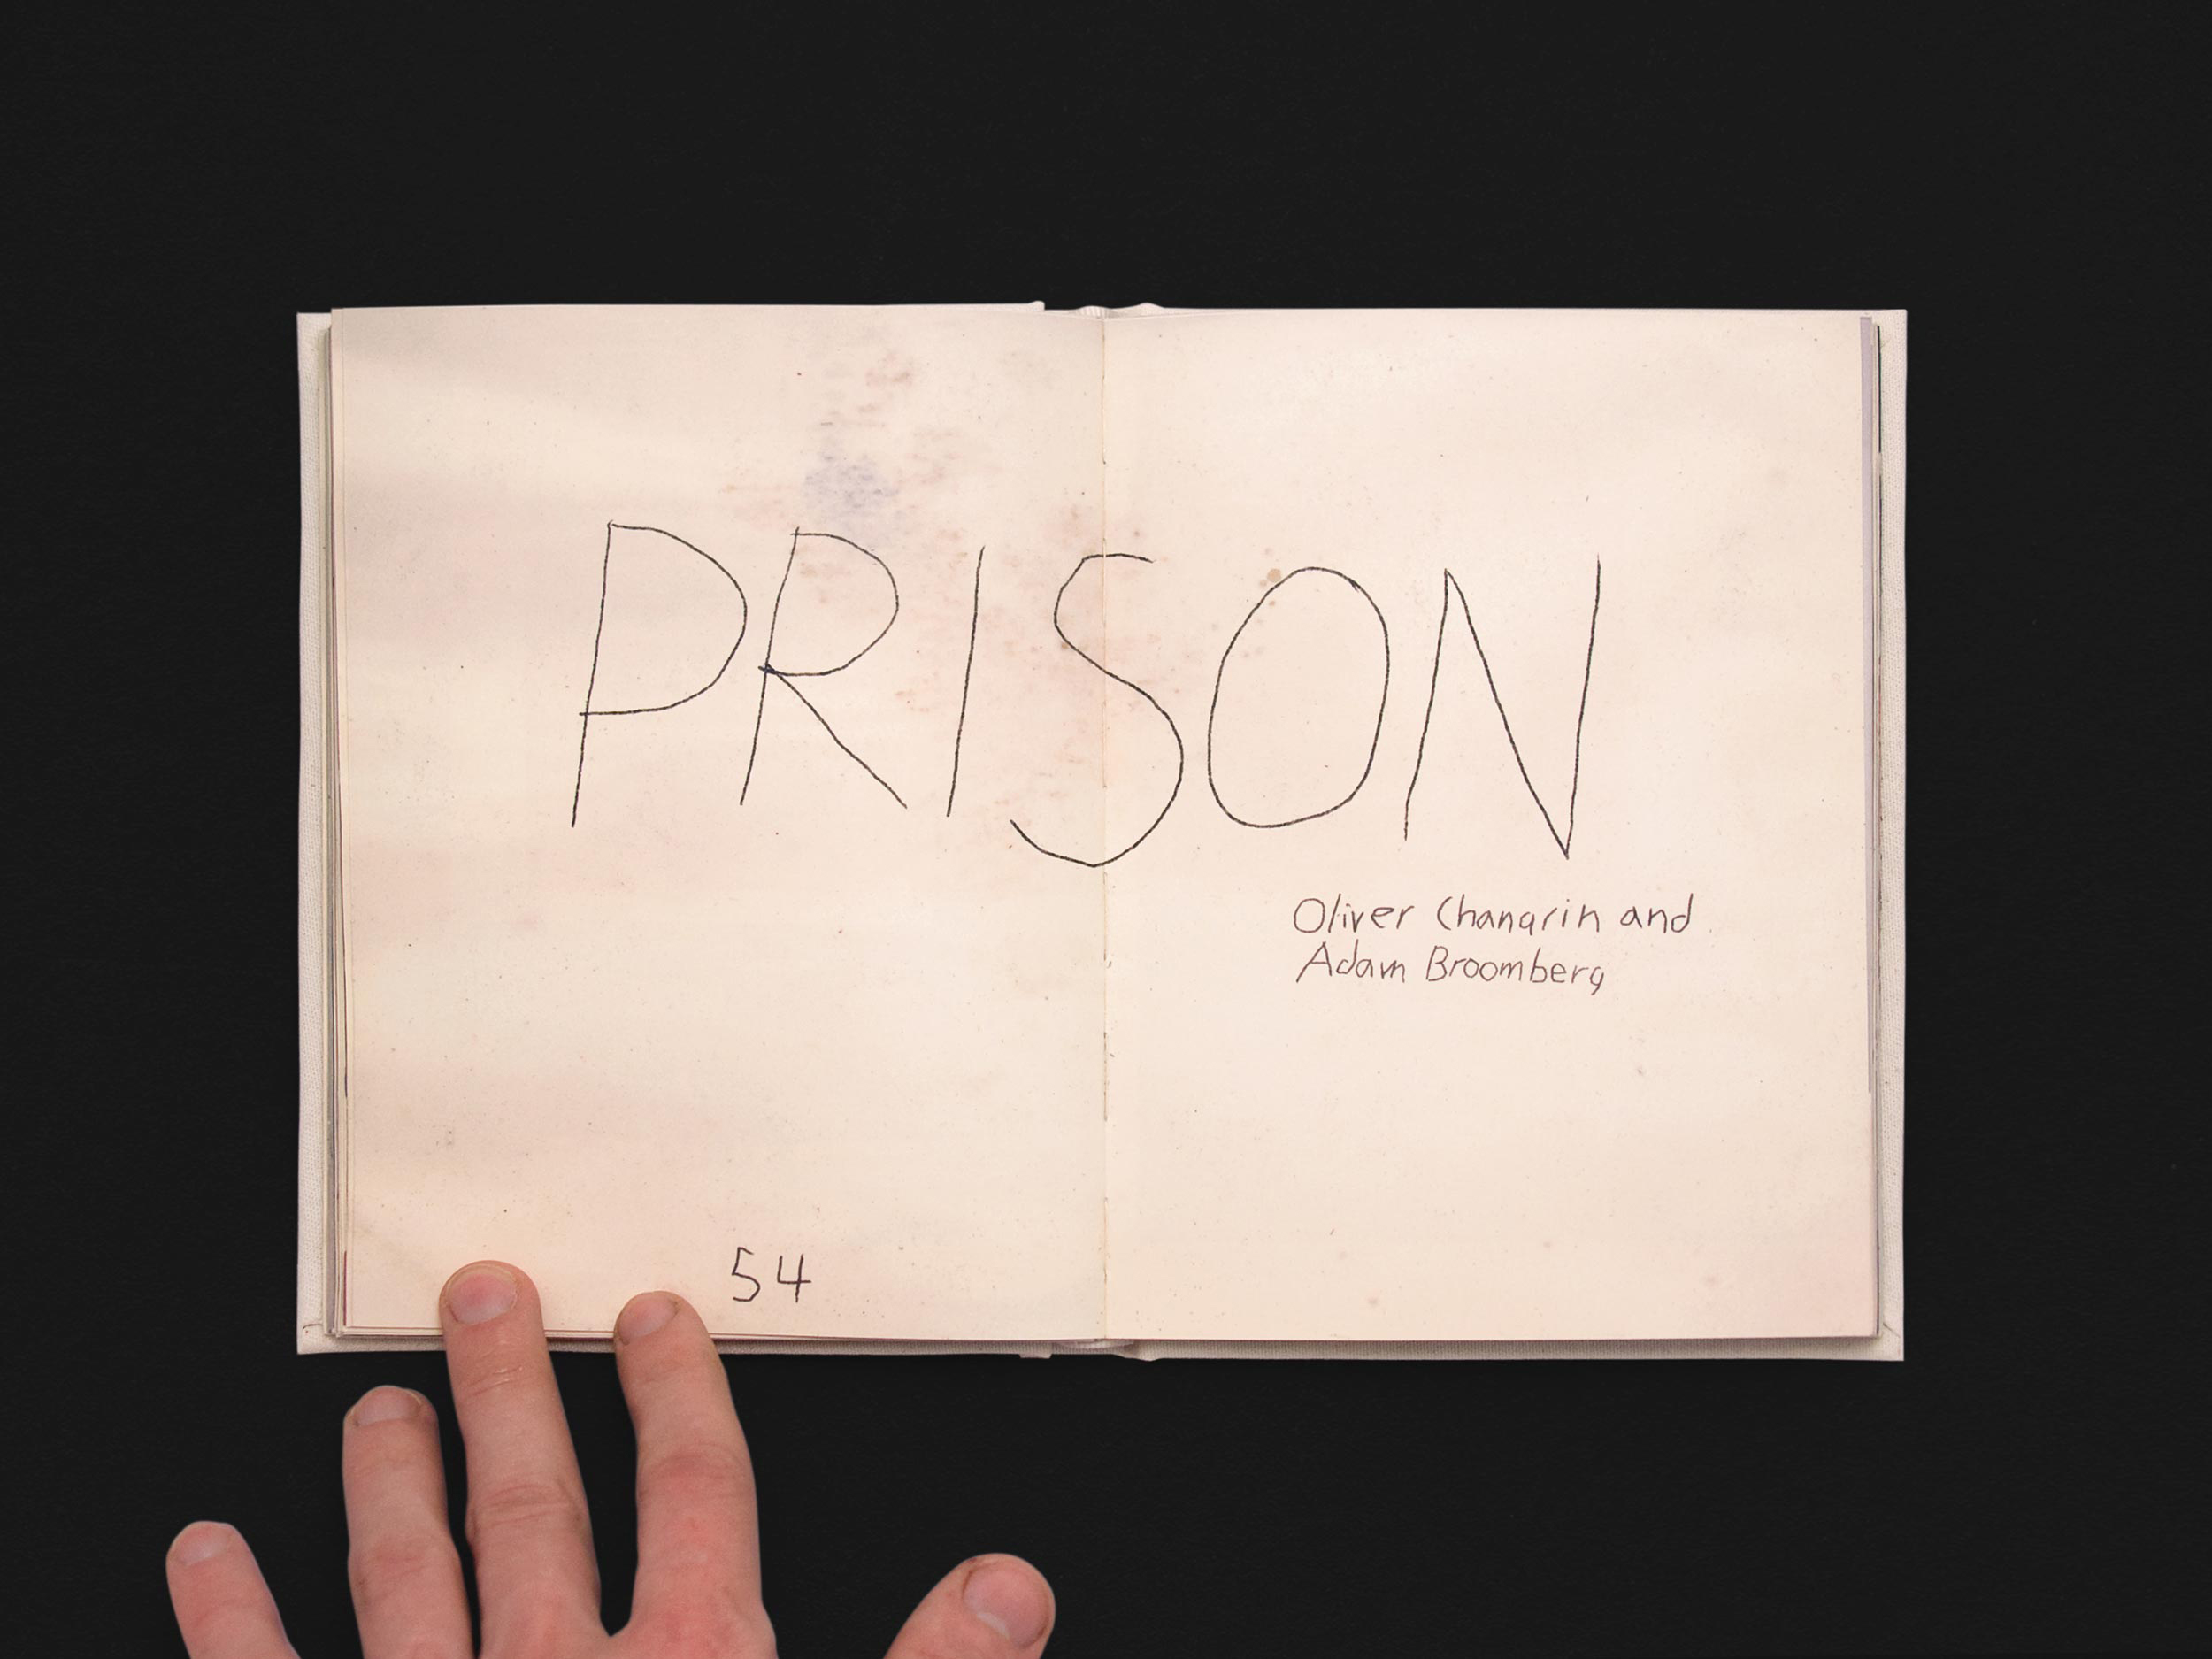 PRISON
Oliver Chanarin and
Adam Broomberg
54